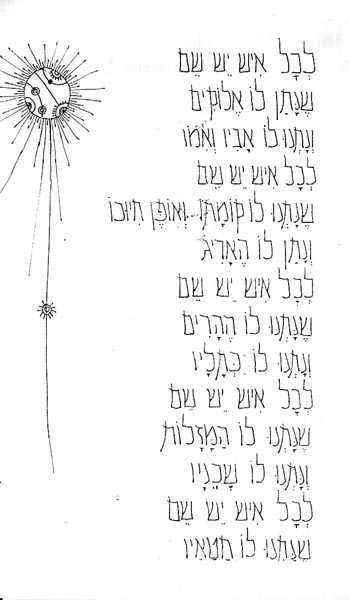 לְכָל אִישׁ יֵשׁ שֵׁם
שֶׁנָּתַן לוֹ אֱלוֹקִים
וְנָתְנוּ לוֹ אָבִיו וְאִמּוֹ
לְכָל אִישׁ יֵשׁ שֵׁם
שֶׁנָּתְנוּ לוֹ קוֹמָתוֹ וְאוֹפֶן חִיּוּכוֹ
וְנָתַן לוֹ הָאָרִיג
לְכָל אִישׁ יֵשׁ שֵׁם
שֶׁנָּתְנוּ לוֹ הֶהָרִים
וְנָתְנוּ לוֹ כְּתָלָיו
לְכָל אִישׁ יֵשׁ שֵׁם
שֶׁנָּתְנוּ לוֹ הַמַּזָּלוֹת
וְנָתְנוּ לוֹ שְׁכֵנָיו
לְכָל אִישׁ יֵשׁ שֵׁם
שֶׁנָּתְנוּ לוֹ חֲטָאָיו